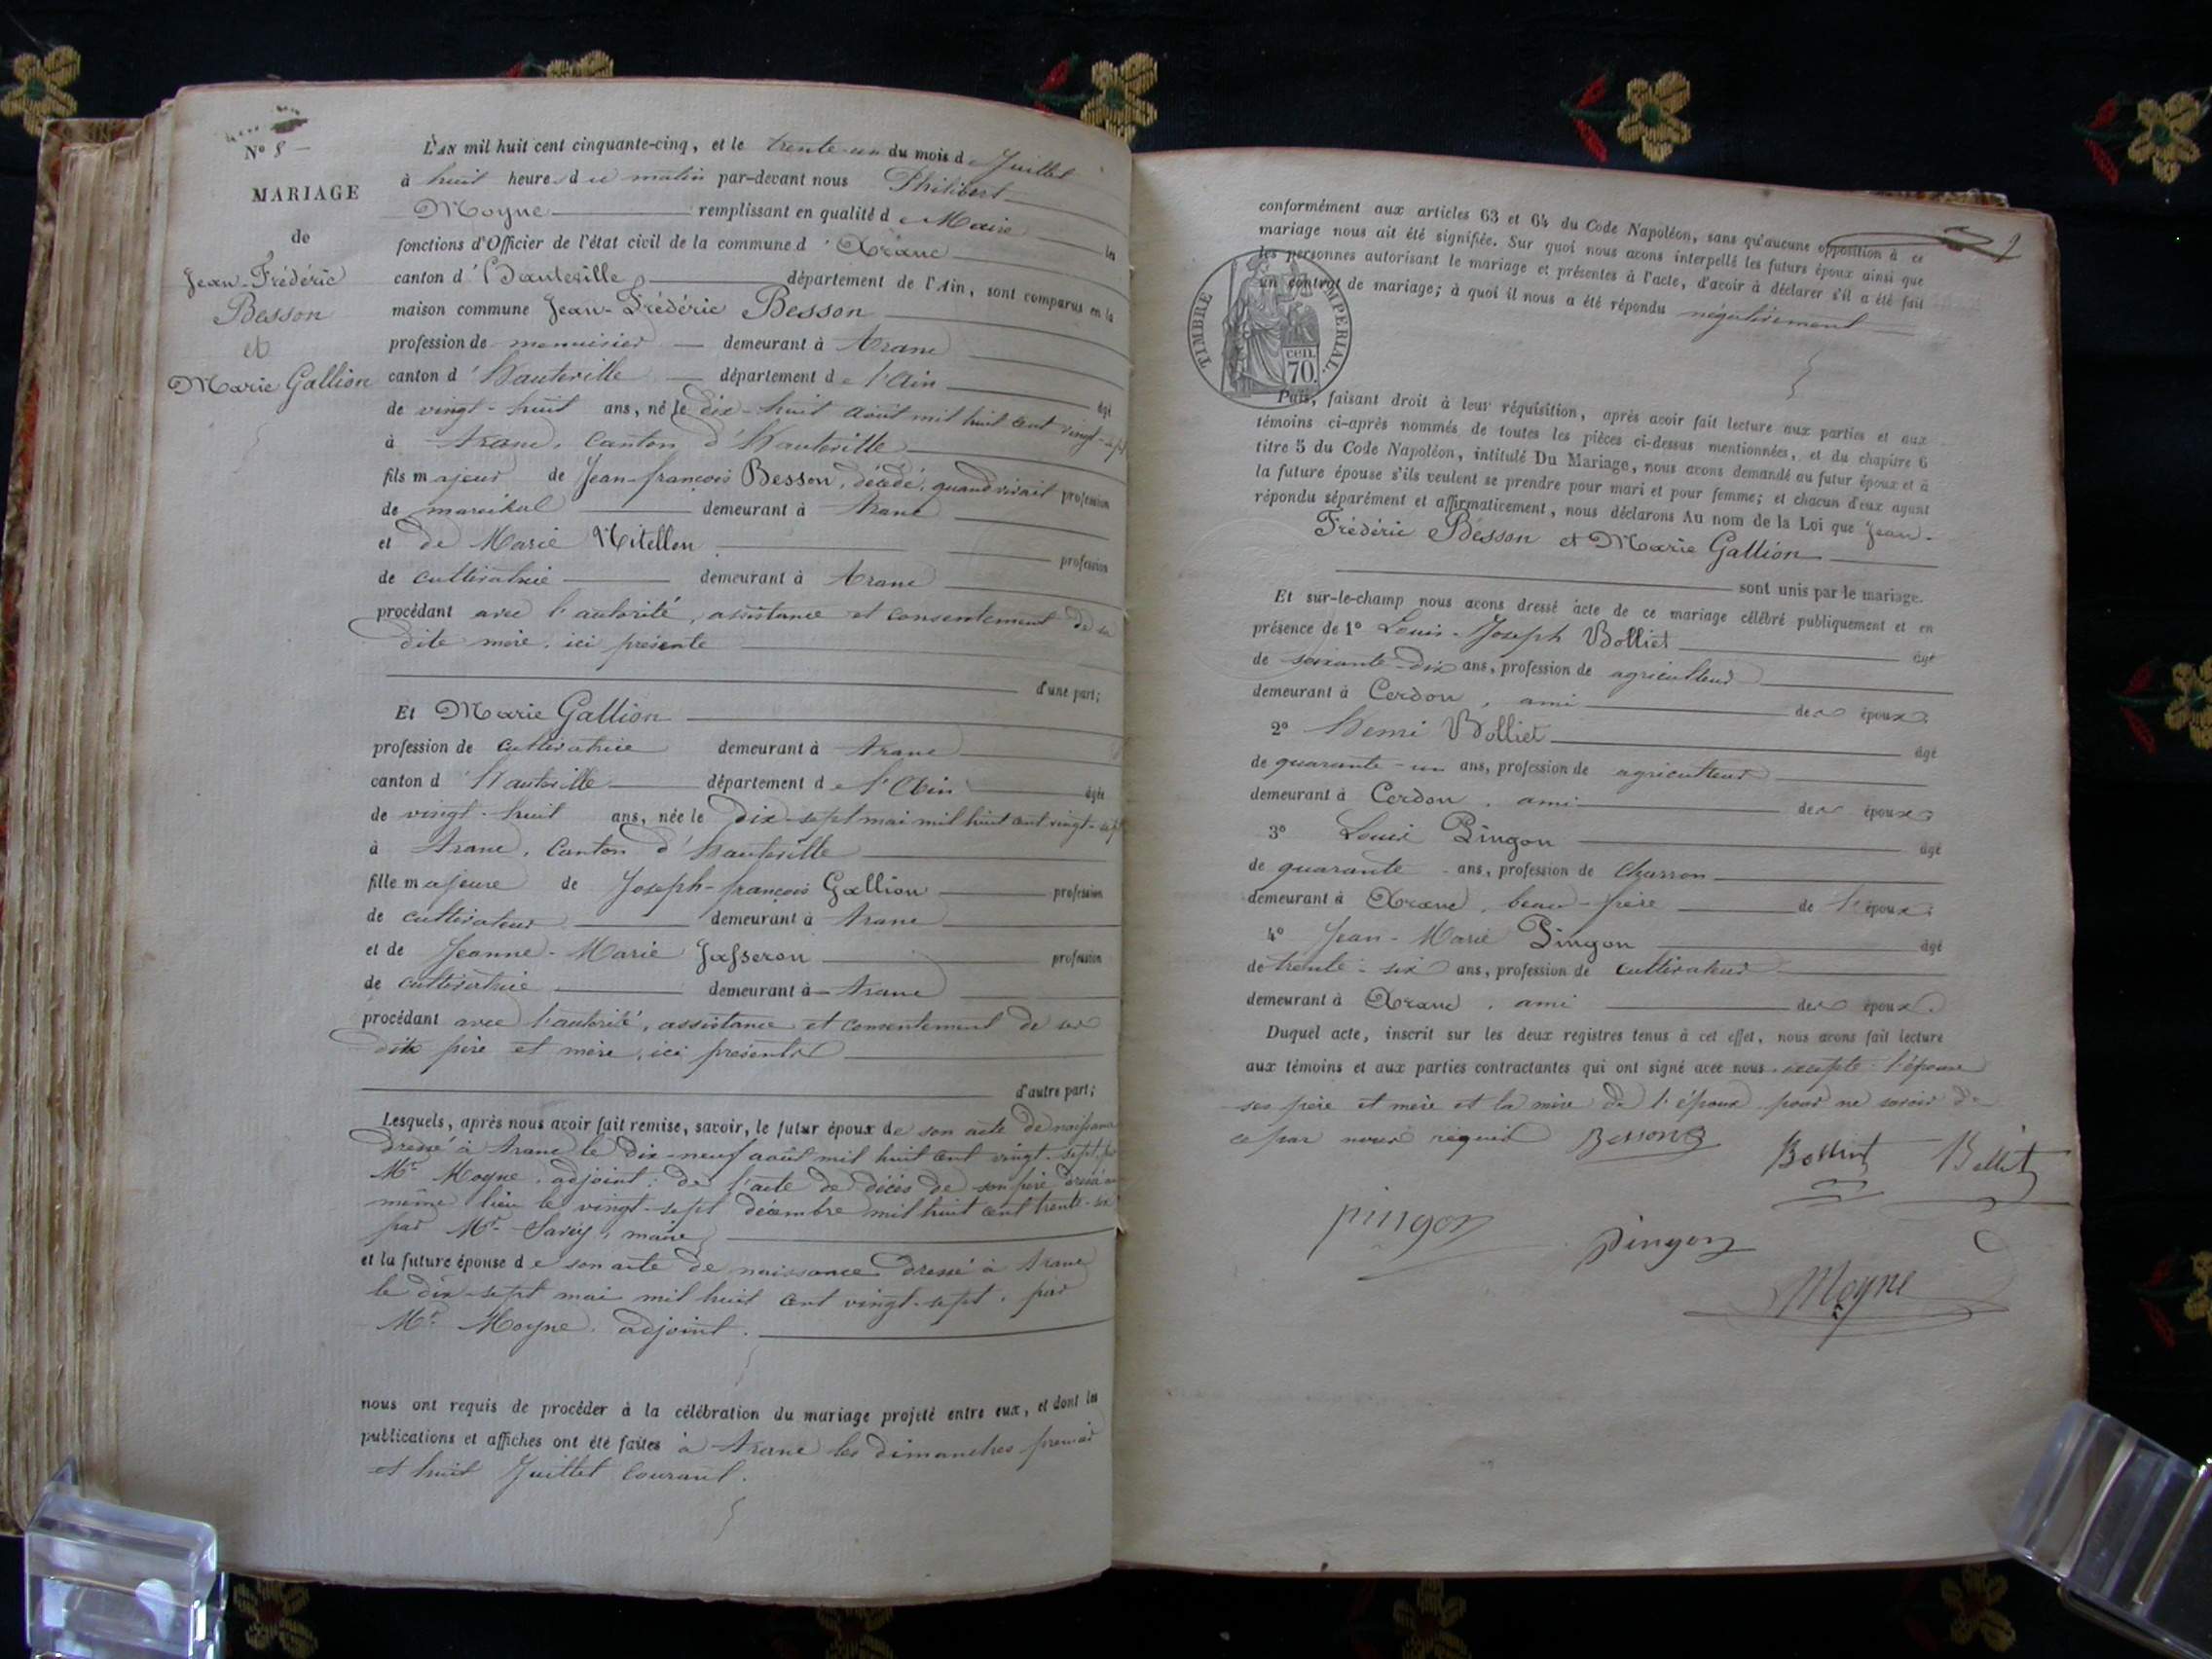 Nº 8 —
MARIAGE
de
Jean-Frédéric
Besson
et
Marie Gallion
L'AN mil huit cent cinquante-cinq, et le trente-un du mois de Juillet
à huit heures du matin par-devant nous Philibert
Moyne remplissant en qualité de Maire les
fonctions d'Officier de l'état civil de la commune d'Aranc
canton d'Hauteville département de l'Ain, sont comparus en la
maison commune Jean-Frédéric Besson
profession de menuisier demeurant à Aranc
canton d'Hauteville département de l'Ain âgé
de vingt-huit ans, né le dix-huit août mil huit cent vingt-sept
à Aranc, canton d'Hauteville
fils majeur de Jean-françois Besson, décédé, quand vivait profession
de maréchal demeurant à Aranc
et de Marie Mitellon profession
de cultivatrice demeurant à Aranc
procédant avec l'autorité, assistance et consentement de sa
dite mère, ici présente
d'une part;
Et Marie Gallion
profession de cultivatrice demeurant à Aranc
canton d'Hauteville département de l'Ain âgée
de vingt-huit ans, née le dix-sept mai mil huit cent vingt-sept
à Aranc, canton d'Hauteville
fille majeure de Joseph-françois Gallion profession
de cultivateur demeurant à Aranc
et de Jeanne-Marie Jasseron profession
de cultivatrice demeurant à Aranc
procédant avec l'autorité, assistance et consentement de ses
dits père et mère, ici présents
d'autre part;
Lesquels, après nous avoir fait remise, savoir, le futur époux de son acte de naissance
dressé à Aranc le dix-neuf août mil huit cent vingt-sept, par
Mr. Moyne, adjoint; de l'acte de décès de son père dressé au
même lieu le vingt-sept décembre mil huit cent trente-six
par Mr. Savey, maire
et la future épouse de son acte de naissance dressé à Aranc
le dix-sept mai mil huit cent vingt-sept, par
Mr. Moyne, adjoint.
nous ont requis de procéder à la célébration du mariage projeté entre eux, et dont les
publications et affiches ont été faites à Aranc les dimanches premier
et huit Juillet courant.
9
conformément aux articles 63 et 64 du Code Napoléon, sans qu'aucune opposition à ce
mariage nous ait été signifiée. Sur quoi nous avons interpellé les futurs époux ainsi que
les personnes autorisant le mariage et présentes à l'acte, d'avoir à déclarer s'il a été fait
un contrat de mariage; à quoi il nous a été répondu négativement
TIMBRE IMPERIAL.
cen.
70.
Puis, faisant droit à leur réquisition, après avoir fait lecture aux parties et aux
témoins ci-après nommés de toutes les pièces ci-dessus mentionnées, et du chapitre 6
titre 5 du Code Napoléon, intitulé Du Mariage, nous avons demandé au futur époux et à
la future épouse s'ils veulent se prendre pour mari et pour femme; et chacun d'eux ayant
répondu séparément et affirmativement, nous déclarons Au nom de la Loi que Jean-
Frédéric Besson et Marie Gallion
sont unis par le mariage.
Et sur-le-champ nous avons dressé acte de ce mariage célébré publiquement et en
présence de 1º Louis-Joseph Bolliet âgé
de soixante-dix ans, profession de agriculteur
demeurant à Cerdon, ami des époux;
2º Henri Bolliet âgé
de quarante-un ans, profession de agriculteur
demeurant à Cerdon, ami des époux;
3º Louis Pingon âgé
de quarante ans, profession de charron
demeurant à Aranc, beau-frère de l'époux;
4º Jean-Marie Pingon âgé
de trente-six ans, profession de cultivateur
demeurant à Aranc, ami des époux.
Duquel acte, inscrit sur les deux registres tenus à cet effet, nous avons fait lecture
aux témoins et aux parties contractantes qui ont signé avec nous excepté l'épouse
ses père et mère et la mère de l'époux pour ne savoir de
ce par nous requis Besson Bolliet Bolliet
pingon pingon
Moyne